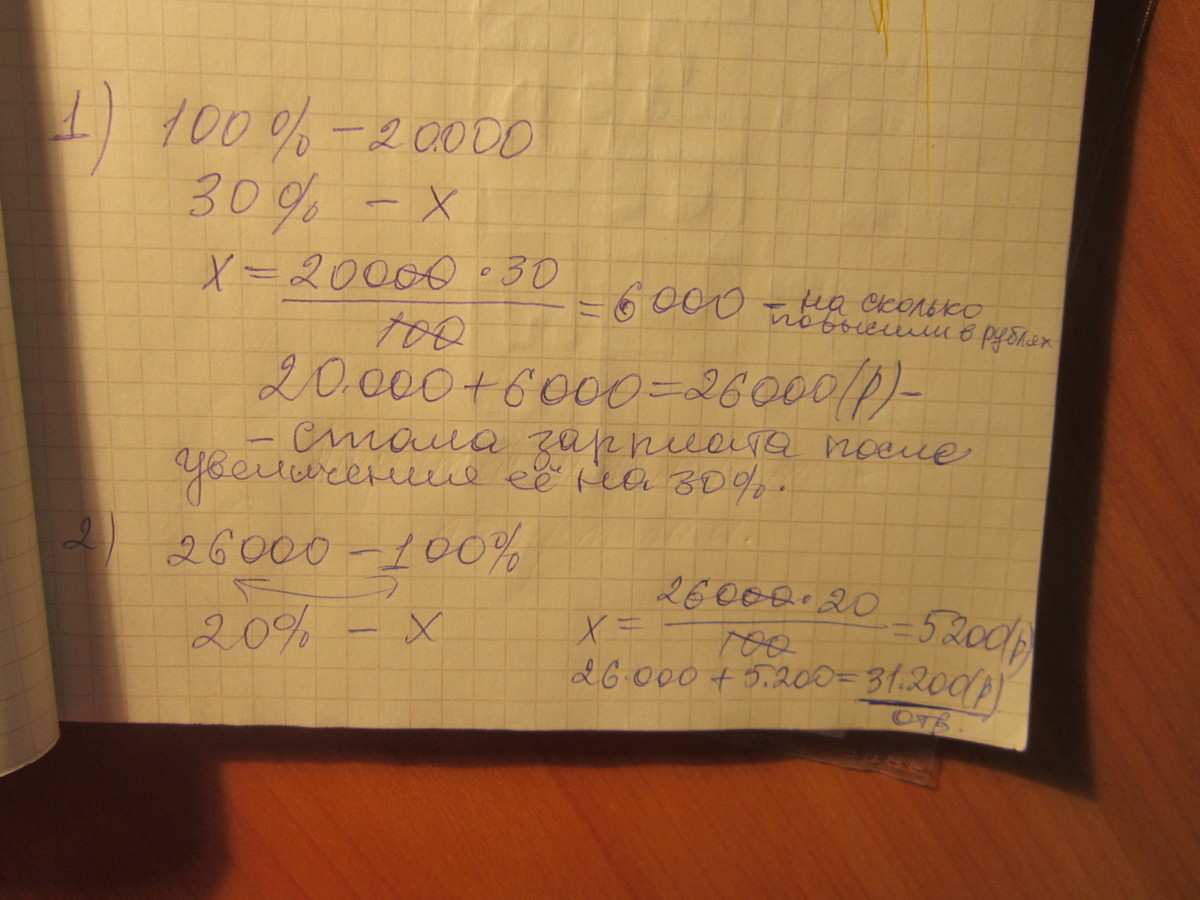 1) 100% – 20.000
30% – х
х = 20000 · 30 / 100 = 6000 – на сколько
повысили в рублях
20.000 + 6000 = 26000(р) –
– стала зарплата после
увеличения её на 30%.
2) 26000 – 100%
20% – х
х = 26000 · 20 / 100 = 5200(р)
26.000 + 5.200 = 31.200(р)
отв.